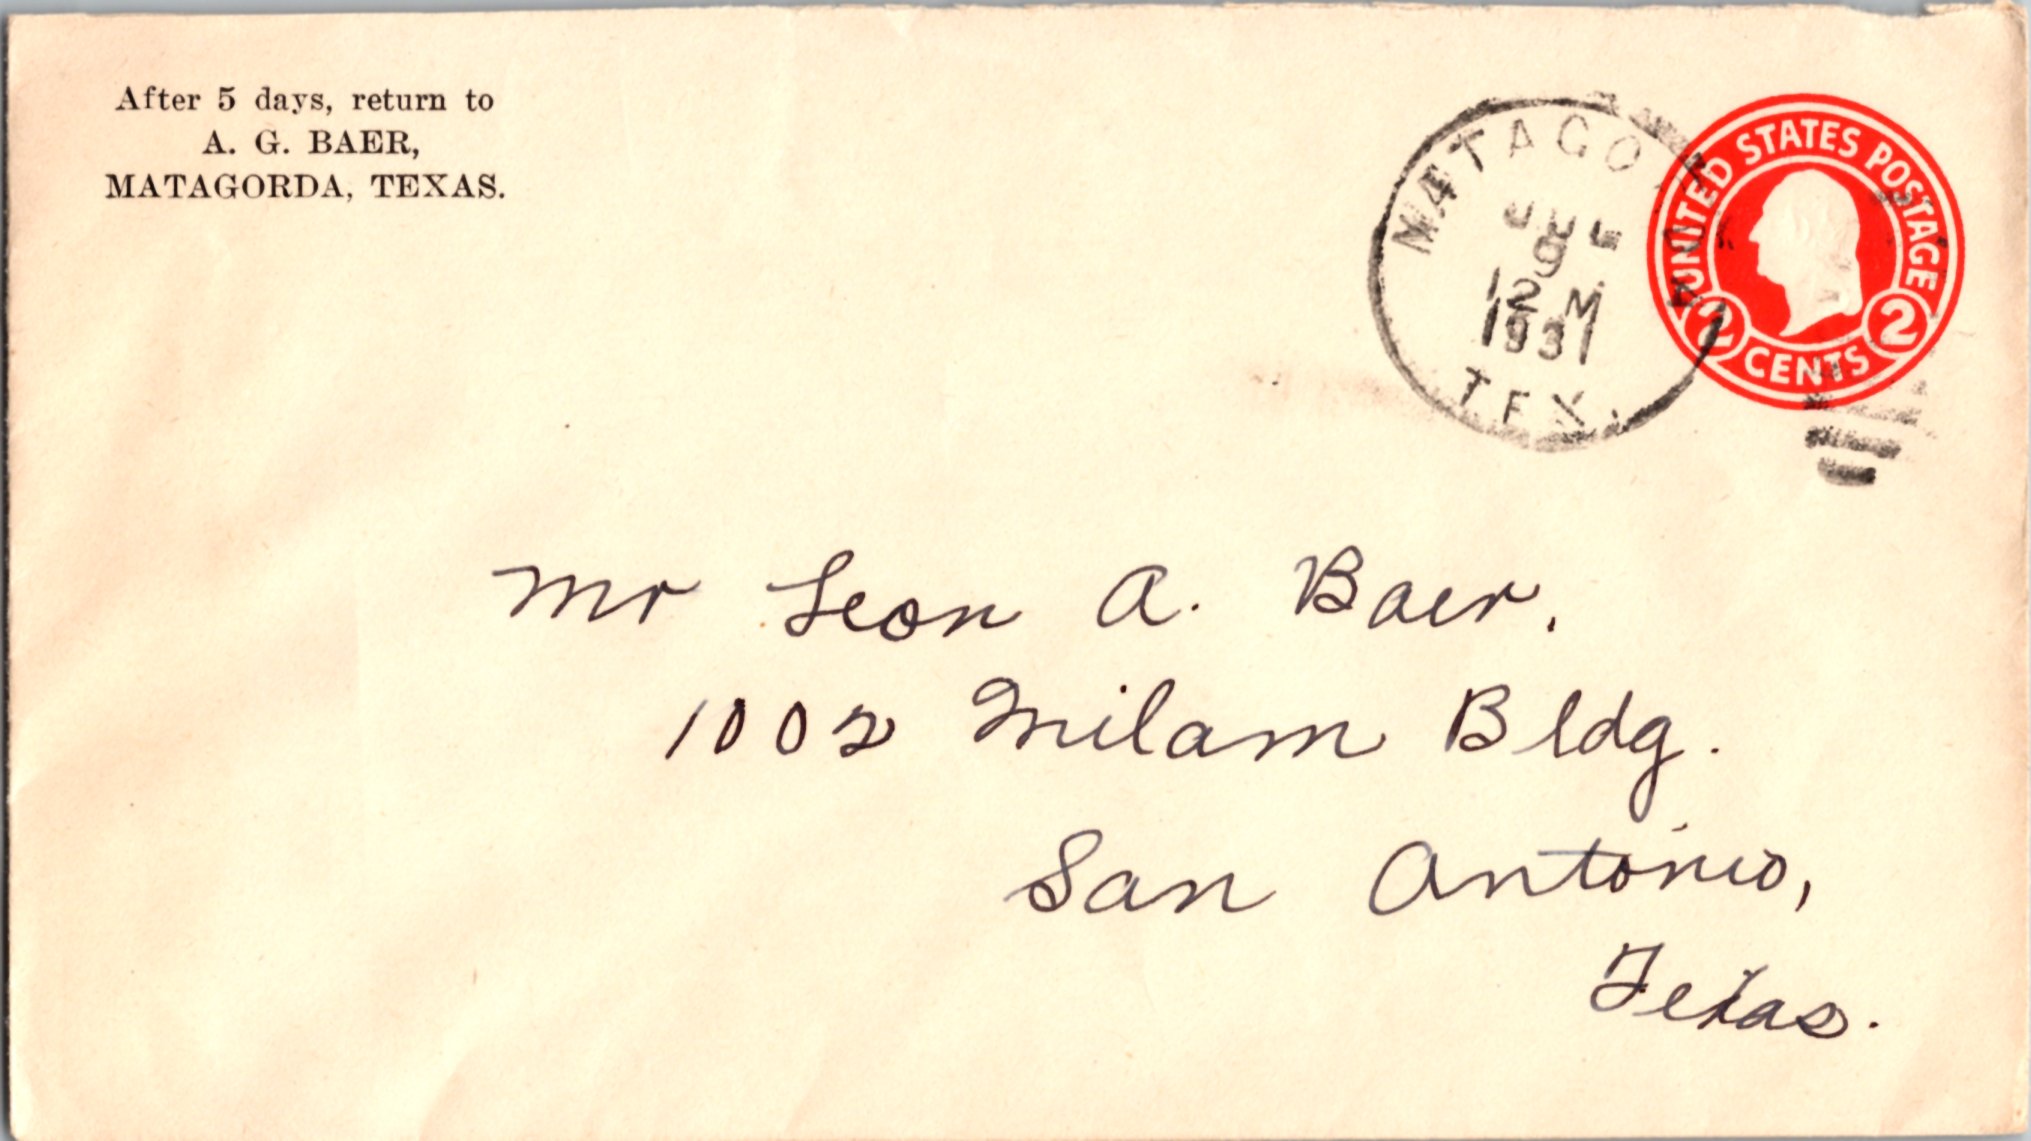 After 5 days, return to
A. G. BAER,
MATAGORDA, TEXAS.
MATAGORDA
JUL
9
12 M
1931
TEX.
UNITED STATES POSTAGE
2 CENTS 2
Mr Leon A. Baer,
1002 Milam Bldg.
San Antonio,
Texas.